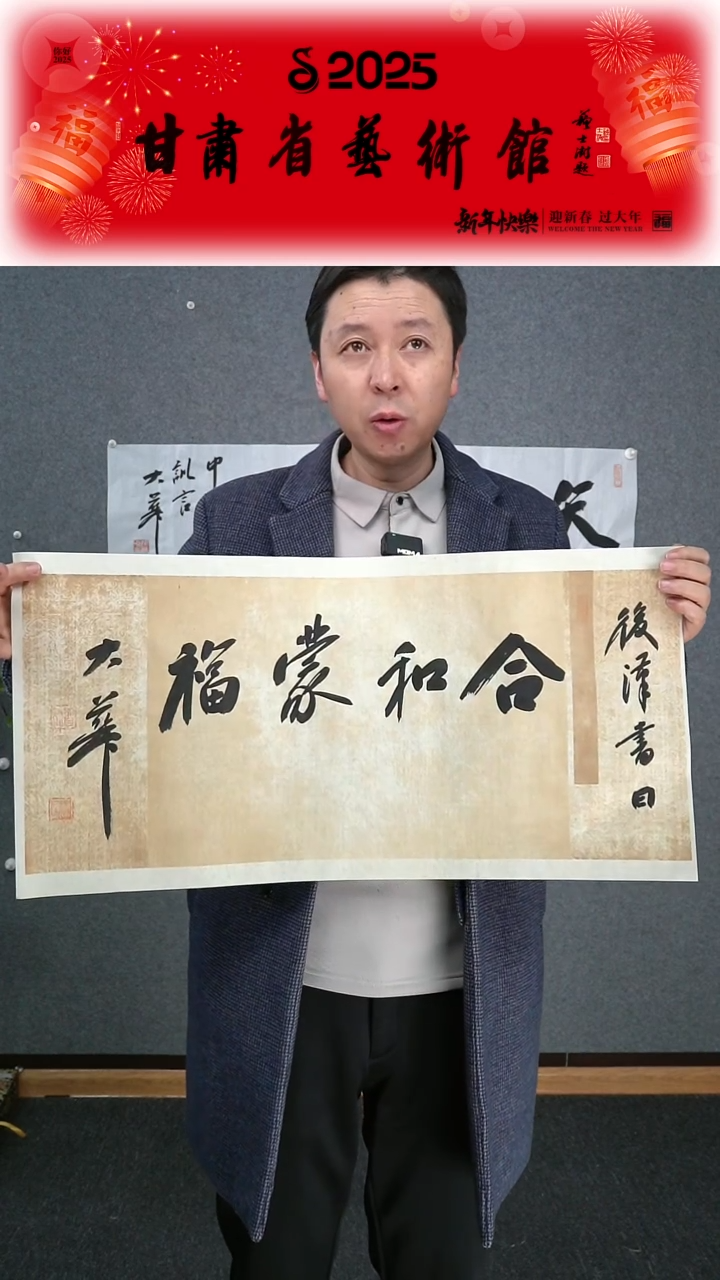 你好
2025
福
2025
福
甘肅省藝術館
新年快樂
迎新春 过大年
WELCOME THE NEW YEAR
福
中
訓言
大華
矢
後漢書曰
合和蒙福
大華